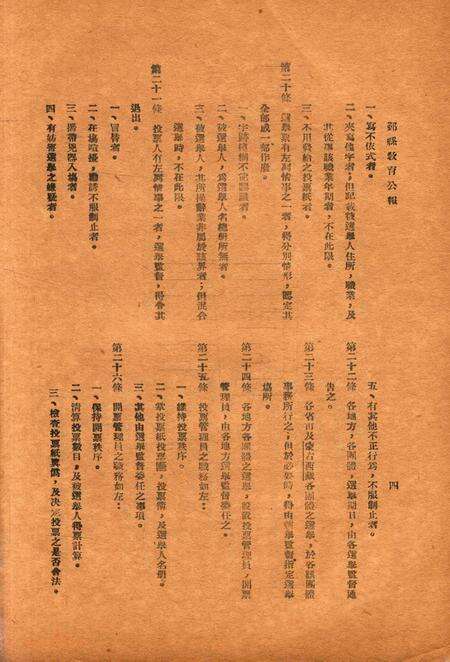 鄞縣教育公報
四
一、寫不依式者。
二、夾寫他字者；但記載被選舉人住所，職業，及
其從事該職業年期者，不在此限。
三、不用發給之投票紙者。
第二十條　選舉票有左列情事之一者，得分別情形，認定其
全部或一部作廢。
一、字跡模糊不能認識者。
二、被選舉人，為選舉人名冊所無者。
三、被選舉人，其所從職業非屬於該界者；但混合
選舉時，不在此限。
第二十一條　投票人有左列情事之一者，選舉監督，得令其
退出。
一、冒替者。
二、在場喧擾，勸誘不服制止者。
三、攜帶兇器入場者。
四、有妨害選舉之嫌疑者。
五、有其他不正行為，不服制止者。
第二十二條　各地方，各團體，選舉期日，由各選舉監督通
告之。
第二十三條　各省市及蒙古西藏各團體之選舉，於各該團體
事務所行之；但於必要時，得由選舉監督指定選舉
場所。
第二十四條　各地方各團體之選舉，設投票管理員，開票
管理員，由各地方選舉監督委任之。
第二十五條　投票管理員之職務如左：
一、維持投票秩序。
二、掌投票紙投票匭，投票簿，及選舉人名冊。
三、其他由選舉監督委任之事項。
第二十六條　開票管理員之職務如左：
一、保持開票秩序。
二、清算投票數目，及被選舉人得票計算。
三、檢查投票紙真偽，及決定投票之是否合法。